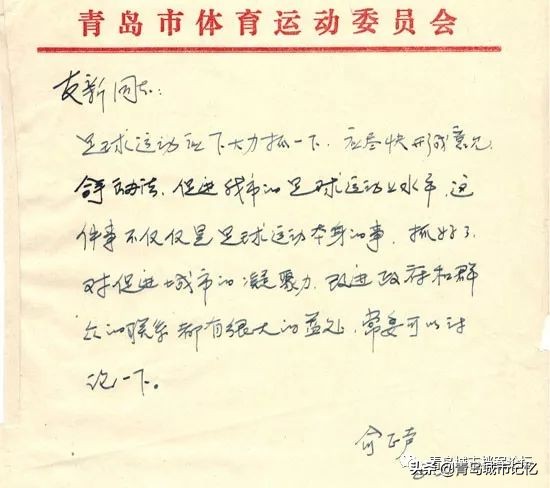 青岛市体育运动委员会
友新同志：
足球运动应下大力抓一下，应尽快形成意见
和办法，促进我市的足球运动上水平，这
件事不仅仅是足球运动本身的事，抓好了，
对促进城市的凝聚力，改进政府和群
众的联系都有很大的益处，常委可以讨
论一下。
俞正声
青岛城市档案论坛
头条@青岛城市记忆